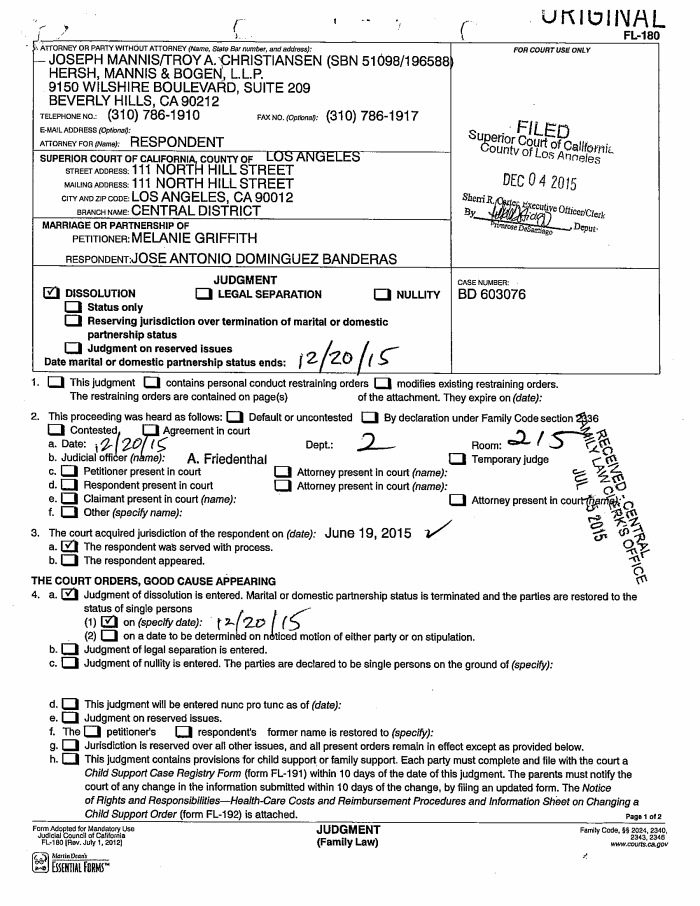 ORIGINAL
FL-180
ATTORNEY OR PARTY WITHOUT ATTORNEY (Name, State Bar number, and address):
JOSEPH MANNIS/TROY A. CHRISTIANSEN (SBN 51098/196588)
HERSH, MANNIS & BOGEN, L.L.P.
9150 WILSHIRE BOULEVARD, SUITE 209
BEVERLY HILLS, CA 90212
TELEPHONE NO.: (310) 786-1910 FAX NO. (Optional): (310) 786-1917
E-MAIL ADDRESS (Optional):
ATTORNEY FOR (Name): RESPONDENT
FOR COURT USE ONLY
FILED
Superior Court of California
County of Los Angeles
DEC 04 2015
Sherri R. Carter, Executive Officer/Clerk
By Deputy
Primrose DeSantiago
SUPERIOR COURT OF CALIFORNIA, COUNTY OF LOS ANGELES
STREET ADDRESS: 111 NORTH HILL STREET
MAILING ADDRESS: 111 NORTH HILL STREET
CITY AND ZIP CODE: LOS ANGELES, CA 90012
BRANCH NAME: CENTRAL DISTRICT
MARRIAGE OR PARTNERSHIP OF
PETITIONER: MELANIE GRIFFITH
RESPONDENT: JOSE ANTONIO DOMINGUEZ BANDERAS
JUDGMENT
DISSOLUTION LEGAL SEPARATION NULLITY
Status only
Reserving jurisdiction over termination of marital or domestic
partnership status
Judgment on reserved issues
Date marital or domestic partnership status ends: 12/20/15
CASE NUMBER:
BD 603076
1. This judgment contains personal conduct restraining orders modifies existing restraining orders.
The restraining orders are contained on page(s) of the attachment. They expire on (date):
2. This proceeding was heard as follows: Default or uncontested By declaration under Family Code section 2336
Contested Agreement in court
a. Date: 12/20/15 Dept.: 2 Room: 215
b. Judicial officer (name): A. Friedenthal Temporary judge
c. Petitioner present in court Attorney present in court (name):
d. Respondent present in court Attorney present in court (name):
e. Claimant present in court (name): Attorney present in court (name):
f. Other (specify name):
RECEIVED - CENTRAL
FAMILY LAW CLERK'S OFFICE
JUL 15 2015
3. The court acquired jurisdiction of the respondent on (date): June 19, 2015 ✓
a. The respondent was served with process.
b. The respondent appeared.
THE COURT ORDERS, GOOD CAUSE APPEARING
4. a. Judgment of dissolution is entered. Marital or domestic partnership status is terminated and the parties are restored to the
status of single persons
(1) on (specify date): 12/20/15
(2) on a date to be determined on noticed motion of either party or on stipulation.
b. Judgment of legal separation is entered.
c. Judgment of nullity is entered. The parties are declared to be single persons on the ground of (specify):
d. This judgment will be entered nunc pro tunc as of (date):
e. Judgment on reserved issues.
f. The petitioner's respondent's former name is restored to (specify):
g. Jurisdiction is reserved over all other issues, and all present orders remain in effect except as provided below.
h. This judgment contains provisions for child support or family support. Each party must complete and file with the court a
Child Support Case Registry Form (form FL-191) within 10 days of the date of this judgment. The parents must notify the
court of any change in the information submitted within 10 days of the change, by filing an updated form. The Notice
of Rights and Responsibilities—Health-Care Costs and Reimbursement Procedures and Information Sheet on Changing a
Child Support Order (form FL-192) is attached.
Page 1 of 2
Form Adopted for Mandatory Use
Judicial Council of California
FL-180 [Rev. July 1, 2012]
Martin Dean's
ESSENTIAL FORMS™
JUDGMENT
(Family Law)
Family Code, §§ 2024, 2340,
2343, 2346
www.courts.ca.gov